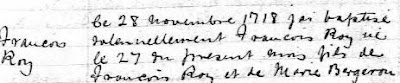 Le 28 novembre 1718 jai baptisé
Francois
Roy
solennellement Francois Roy né
le 27 du present mois fils de
Francois Roy et de Marie Bergeron